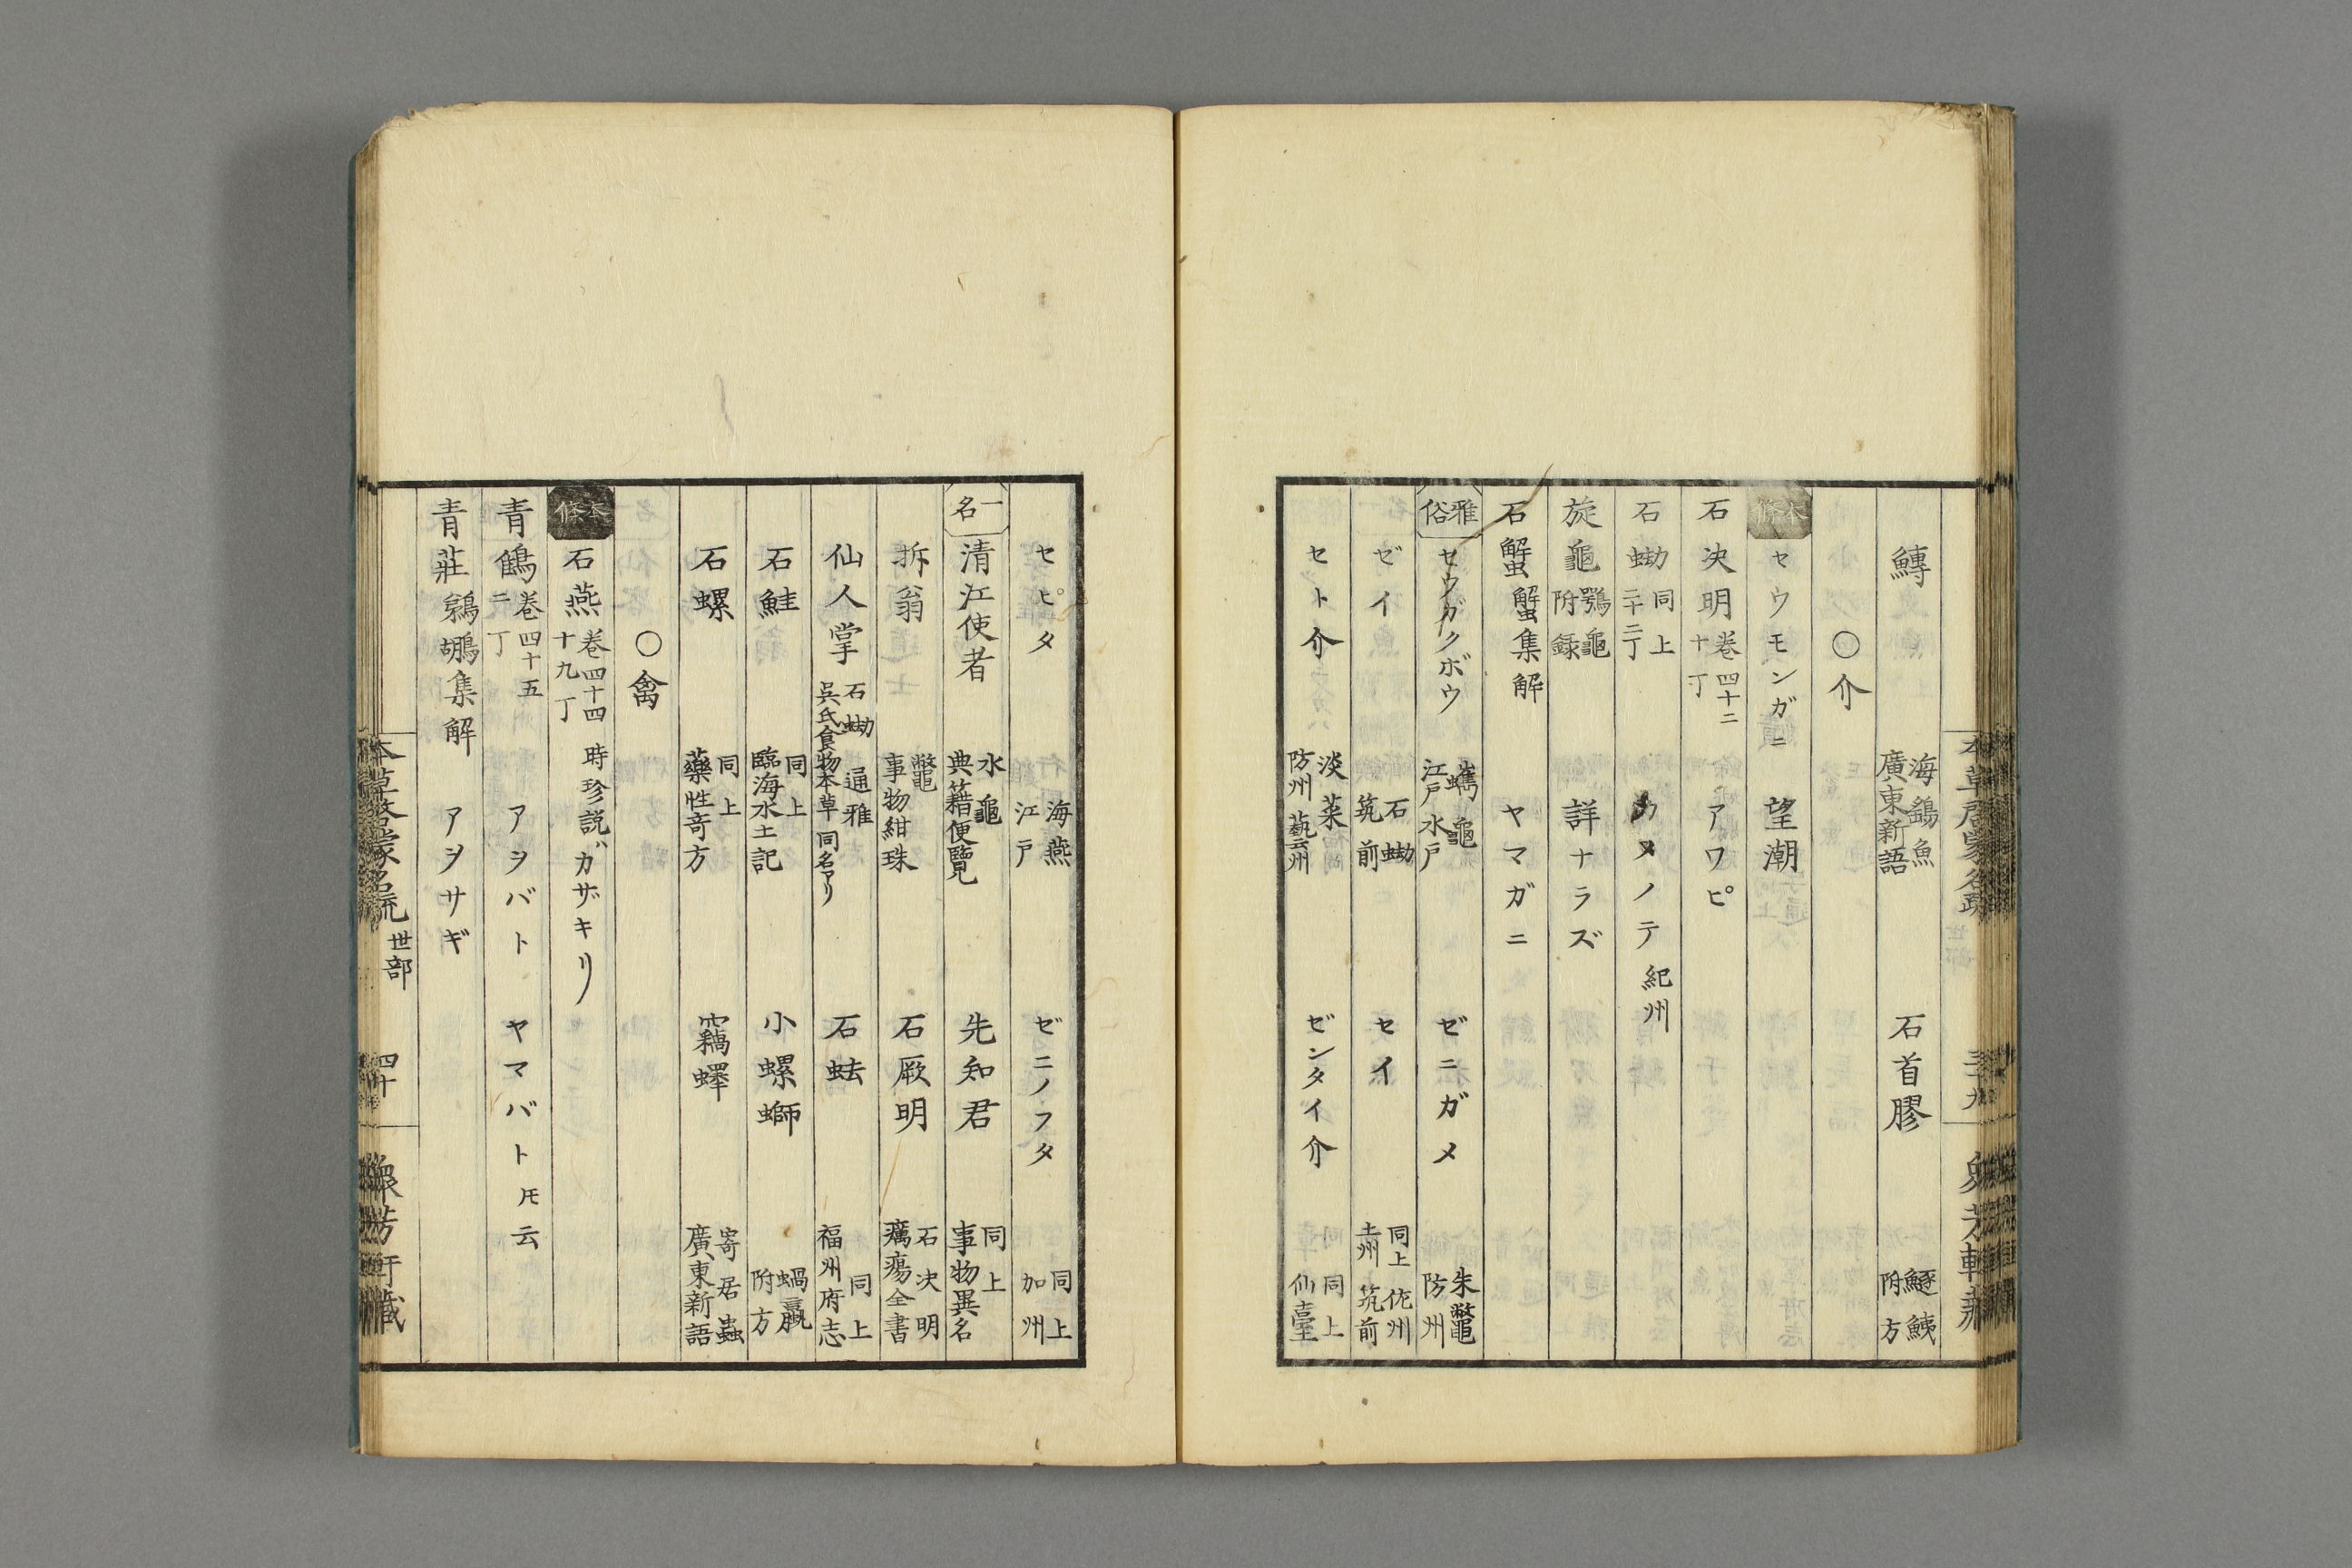 鱄 海鷂魚 廣東新語 石首膠 鱁鮧 附方
〇介
本條 セウモンガニ 望潮
石决明 卷四十二 十丁 アワビ
石蜐 同上 二十二丁 カメノテ 紀州
旋龜 鶚龜 附録 詳ナラズ
石蟹 蟹集解 ヤマガニ
雅俗 セウガクボウ 蠵龜 江戸 水戸 ゼニガメ 朱鼈 防州
ゼイ 石蜐 筑前 セイ 同上 佐州 土州 筑前
セト介 淡菜 防州 藝州 ゼンタイ介 同上 仙臺
本草啓蒙名疏 三十九 衆芳軒藏
セピタ 海燕 江戸 ゼニノフタ 同上 加州
一名 清江使者 水龜 典籍便覽 先知君 同上 事物異名
拆翁 鼈 事物紺珠 石厥明 石决明 癘瘍全書
仙人掌 石蜐 通雅 呉氏食物本草同名アリ 石蚨 同上 福州府志
石鮭 同上 臨海水土記 小螺螄 蝸蠃 附方
石螺 同上 藥性竒方 竊蠌 寄居蟲 廣東新語
〇禽
本條 石燕 卷四十四 十九丁 時珍説ガザキリ
青鶴 卷四十五 二丁 アヲバト ヤマバトトモ云
青莊 鵜鶘集解 アヲサギ
本草啓蒙名疏 世部 四十 衆芳軒藏